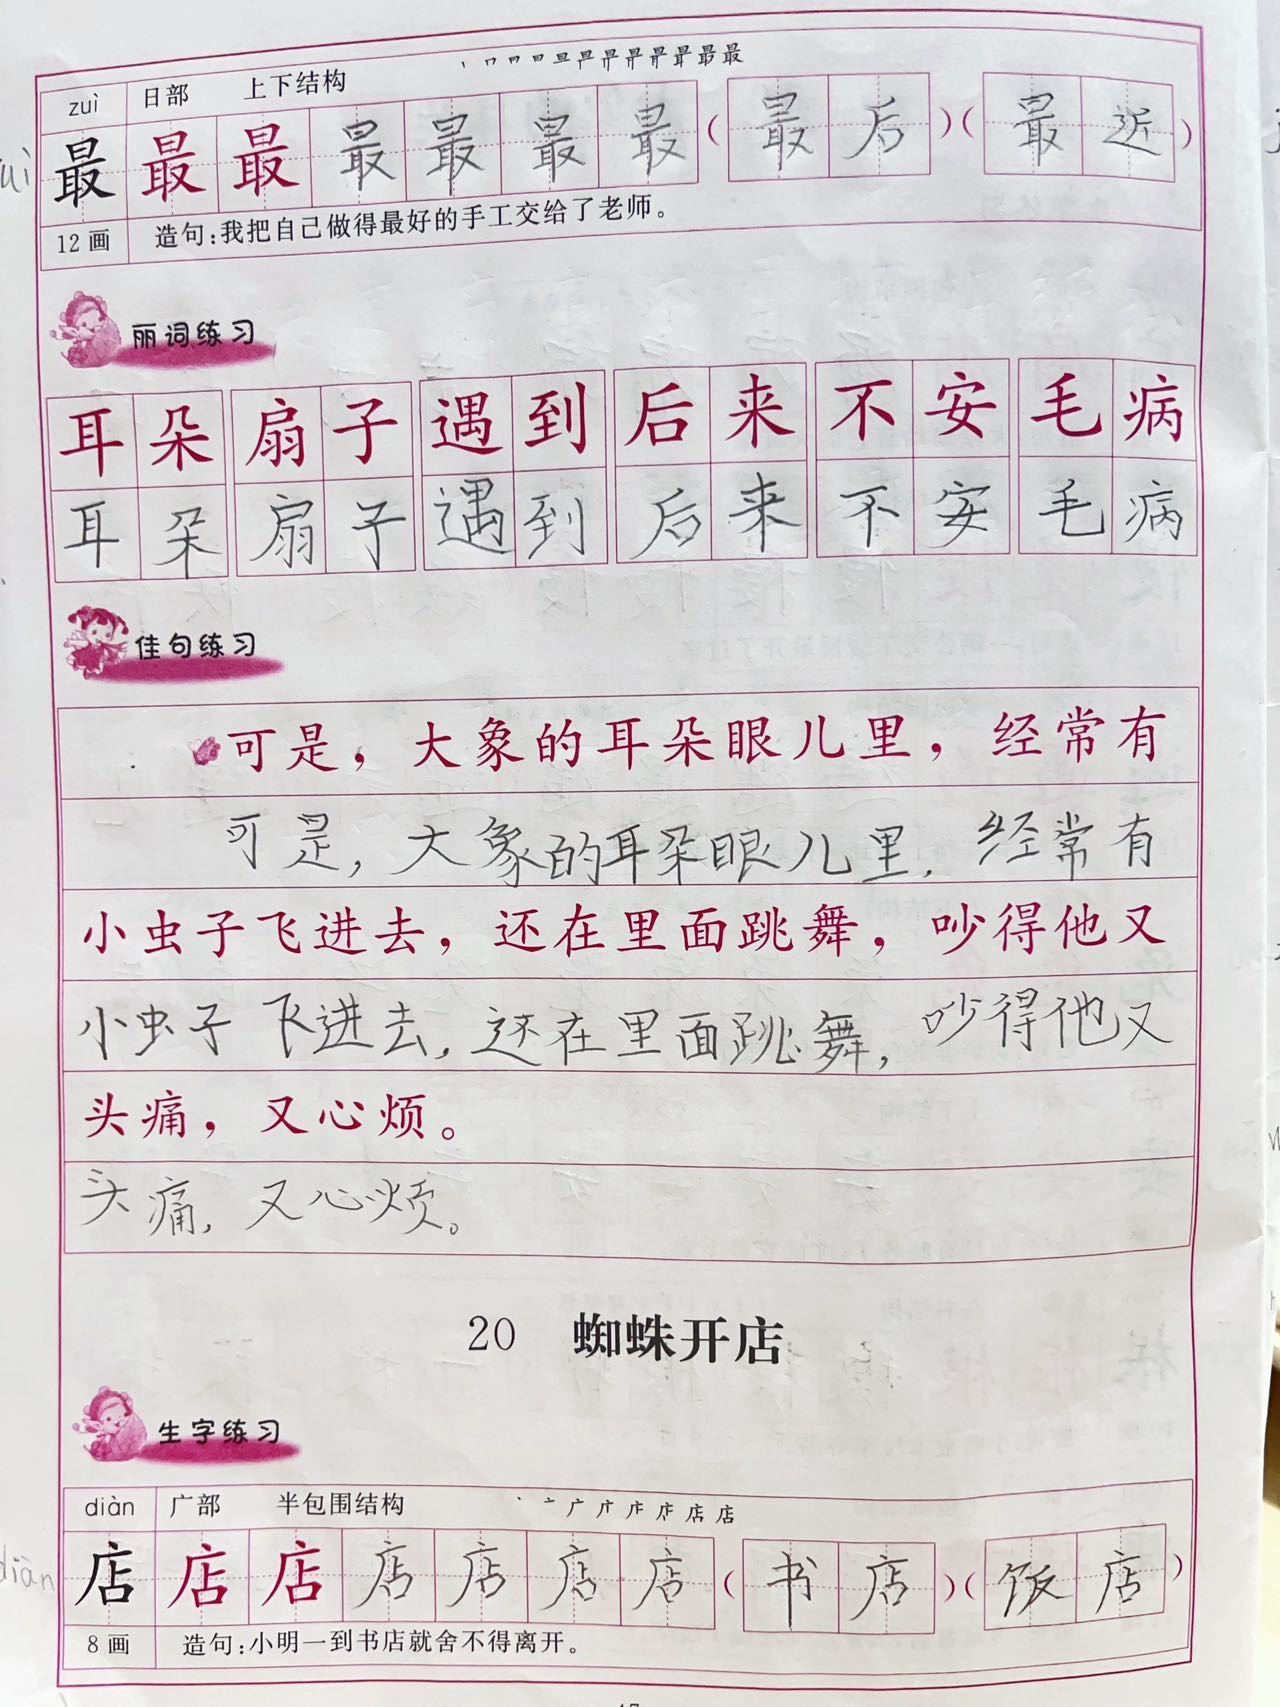 zuì 日部 上下结构
最 最 最 最 最 最 最 (最后)(最近)
12画 造句:我把自己做得最好的手工交给了老师。
丽词练习
耳朵 扇子 遇到 后来 不安 毛病
耳朵 扇子 遇到 后来 不安 毛病
佳句练习
可是，大象的耳朵眼儿里，经常有
可是，大象的耳朵眼儿里，经常有
小虫子飞进去，还在里面跳舞，吵得他又
小虫子飞进去，还在里面跳舞，吵得他又
头痛，又心烦。
头痛，又心烦。
20 蜘蛛开店
生字练习
diàn 广部 半包围结构
diàn 店 店 店 店 店 店 店 (书店)(饭店)
8画 造句:小明一到书店就舍不得离开。